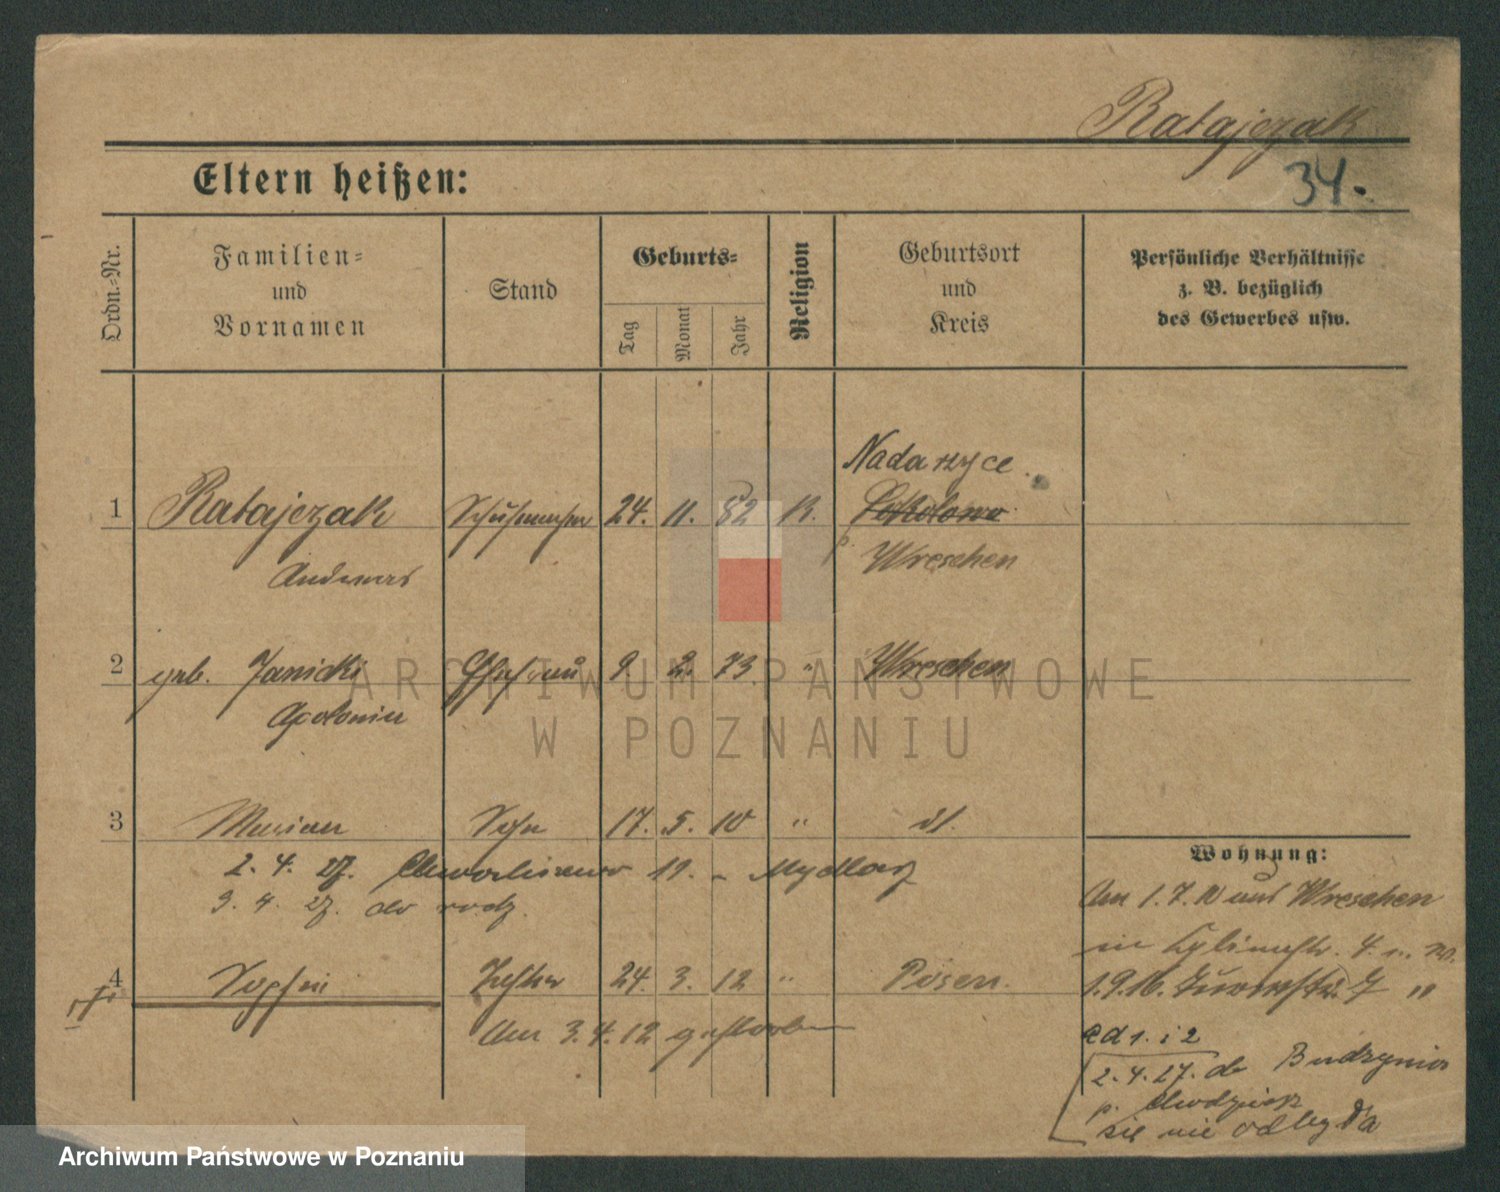 Ratajczak
34.
Eltern heißen:
Ordn.-Nr.
Familien- und Vornamen
Stand
Geburts-
Tag
Monat
Jahr
Religion
Geburtsort und Kreis
Persönliche Verhältnisse
z. B. bezüglich
des Gewerbes usw.
Nadarzyce
1 Ratajczak 24. 11. 82 K. Sokolowo
Wreschen
Andreas
2 geb. Janicki Ehefrau 9. 2. 73 " Wreschen
Apolonia
3 Marian Sohn 17. 5. 10 " dt.
2. 4. 27. 19. - Mydlarz
9. 4. 27. do rodz.
4 Sophie Tochter 24. 3. 12 " Posen.
Am 3. 4. 12 gestorben
Wohnung:
Am 1. 7. 10 aus Wreschen
in 4.
1. 9. 16. 7 "
ad 1. i 2
2. 4. 27. do Budzynia
p. Chodzież
się nie odbyła
ARCHIWUM PAŃSTWOWE
W POZNANIU
Archiwum Państwowe w Poznaniu